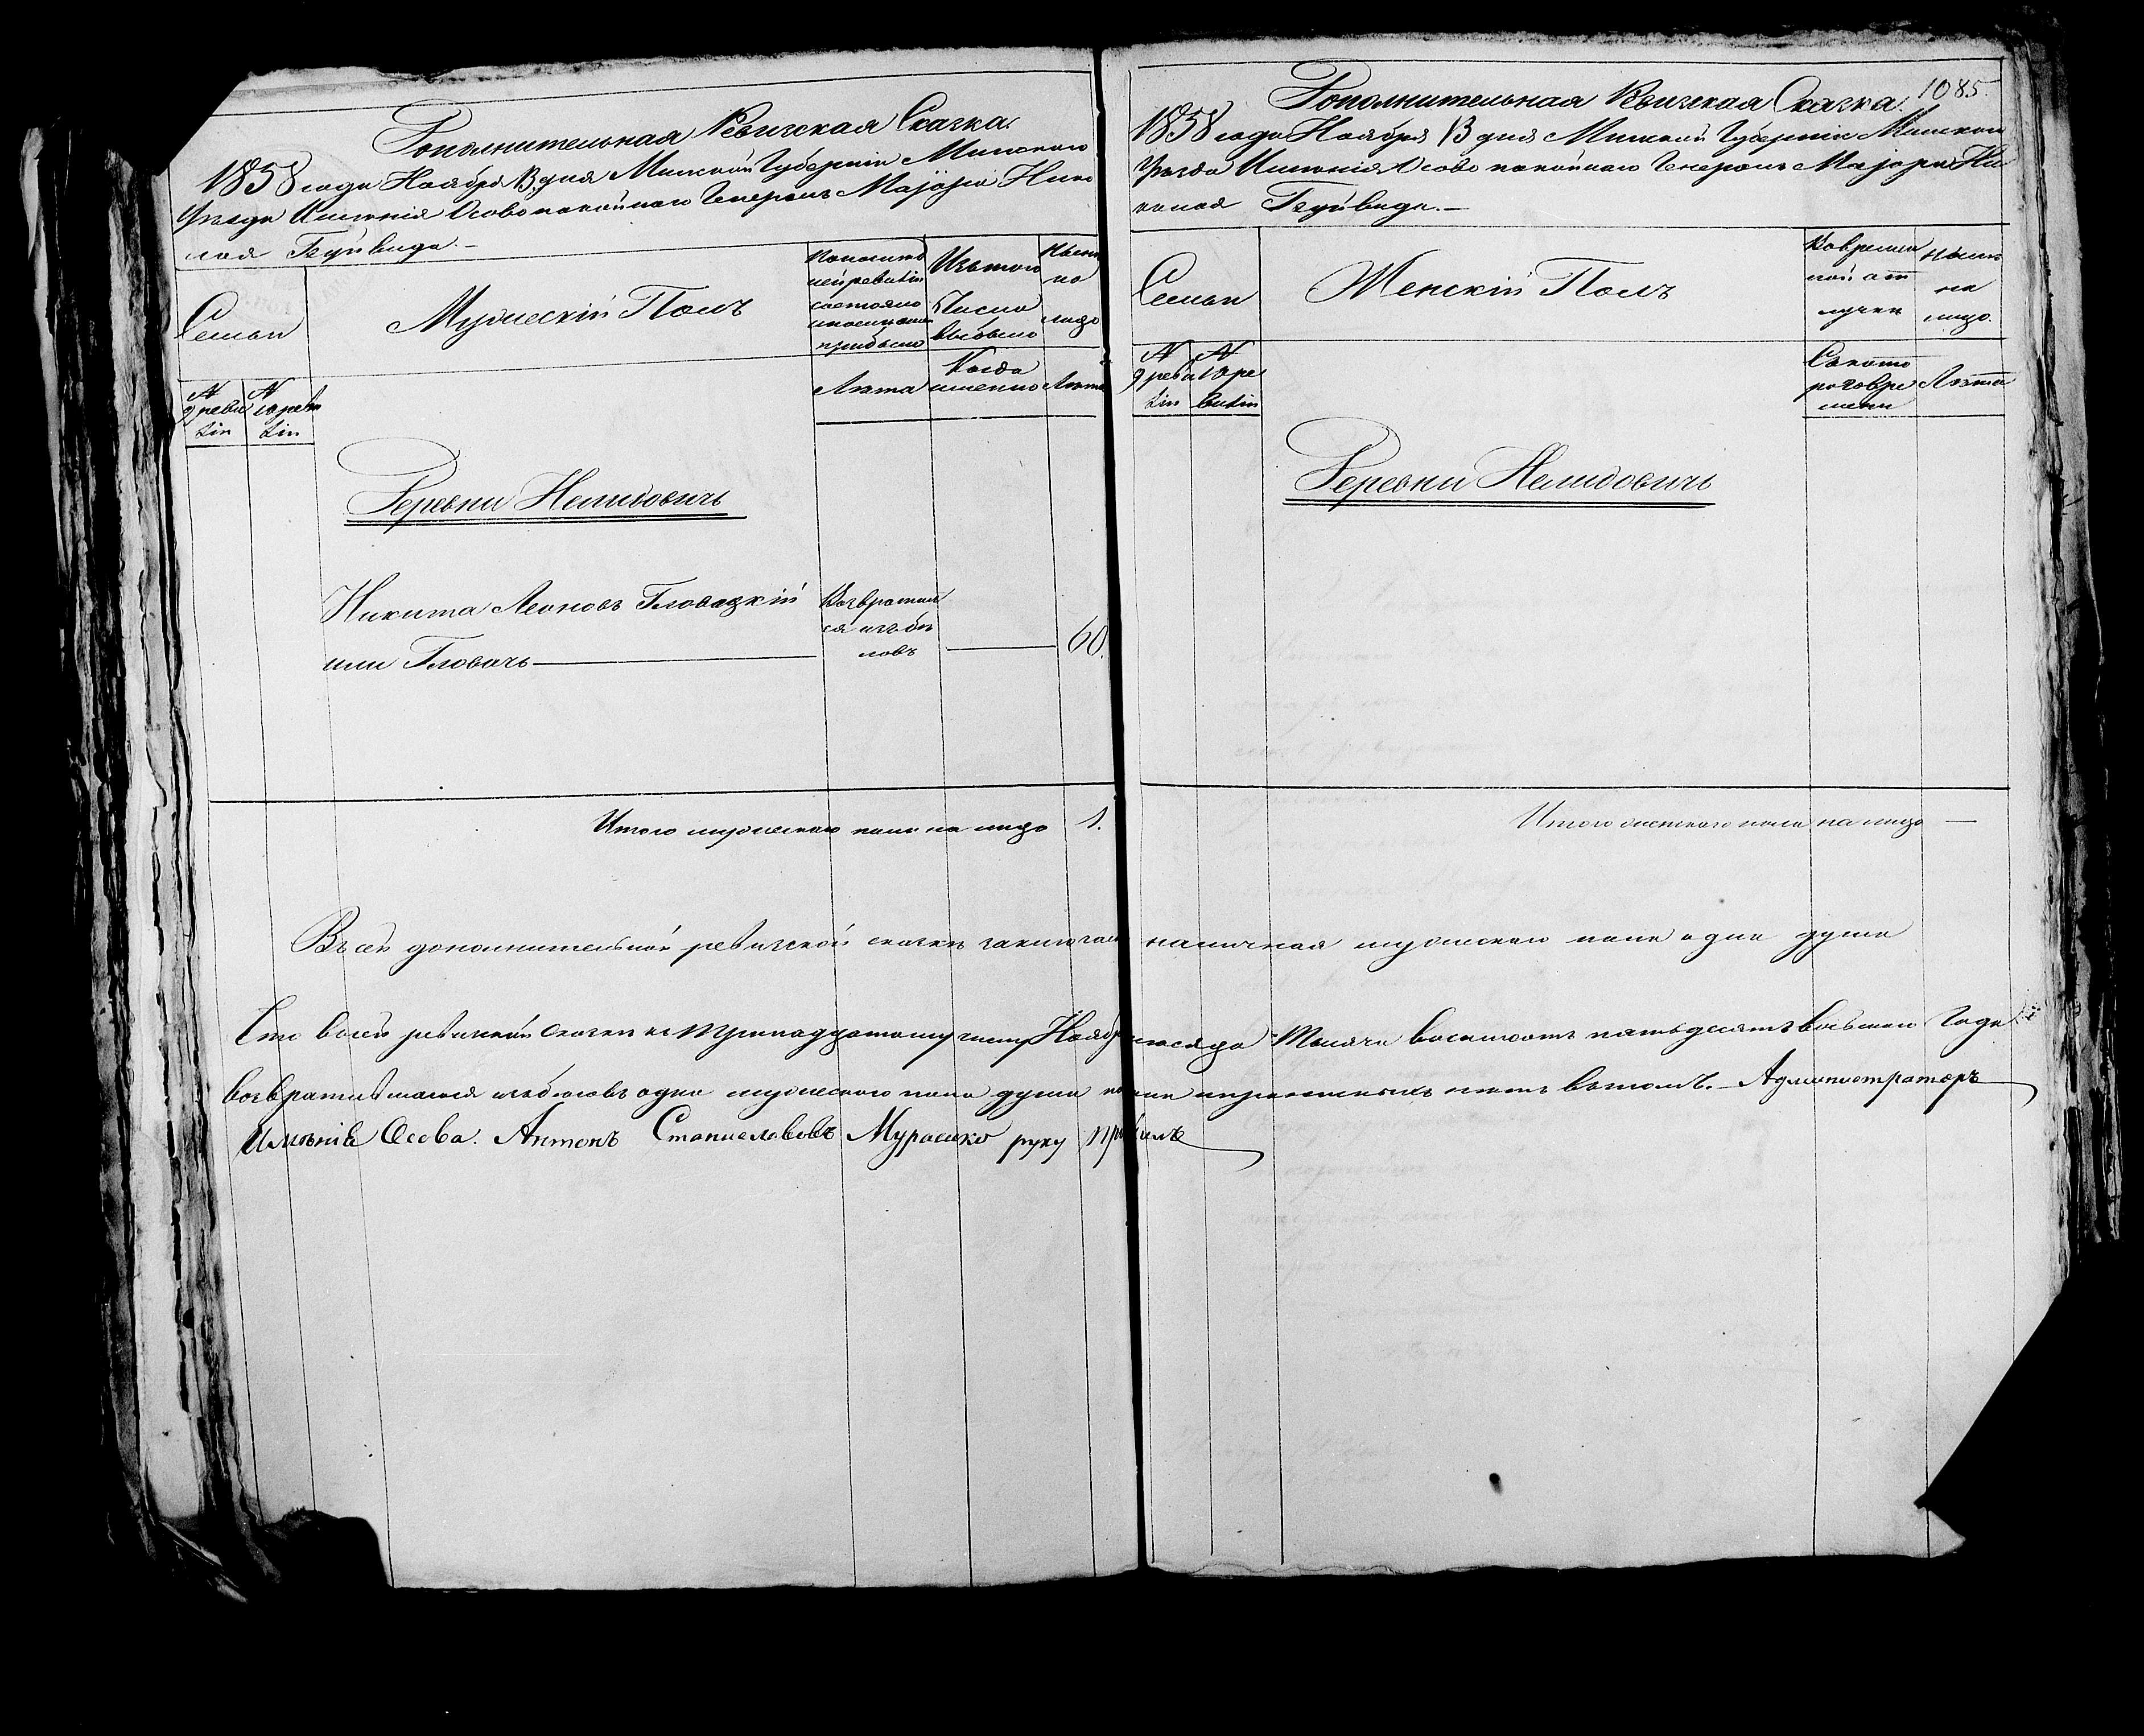 Дополнительная Ревизская Сказка.
1858 года Ноября 13 дня Минской Губерніи Минскаго
Уѣзда Имѣнія Осово покойнаго Генералъ Маіора Нико
лая Гецевида.—
Семьи
Мужескій Полъ
По послѣд
ней ревизіи
состояло
и послѣ оной
прибыло
Изъ того
Числа
выбыло
Нынѣ
на
лицо
№
9 реви
зіи
№
10 реви
зіи
Лѣта
Когда
именно
Лѣта
Деревни Нелидовичь
Никита Леоновъ Гловацкій
или Гловачь
Возвратил
ся изъ бѣ
говъ
60.
Итого мужескаго пола на лицо 1.
1085.
Дополнительная Ревизская Сказка.
1858 года Ноября 13 дня Минской Губерніи Минскаго
Уѣзда Имѣнія Осово покойнаго Генералъ Маіора Ни
колая Гецевида.—
Семьи
Женскій Полъ
Во времен
ной от
лучки
Нынѣ
на
лицо.
№
9 реви
зіи
№
10 ре
визіи
Съ кото
раго вре
мени
Лѣта
Деревни Нелидовичь
Итого женскаго пола на лицо —
Въ сей дополнительной ревизской сказкѣ наличная мужескаго пола одна душа
Что въ сей ревизской сказки къ тринадцатому числу Ноября мѣсяца Тысяча восемьсотъ пятьдесятъ восьмаго Года
возвратившаяся изъ бѣговъ одна мужескаго пола душа и нѣтъ въ томъ.— Администраторъ
Имѣнія Осова. Антонъ Станиславовъ Мурашко руку приложилъ